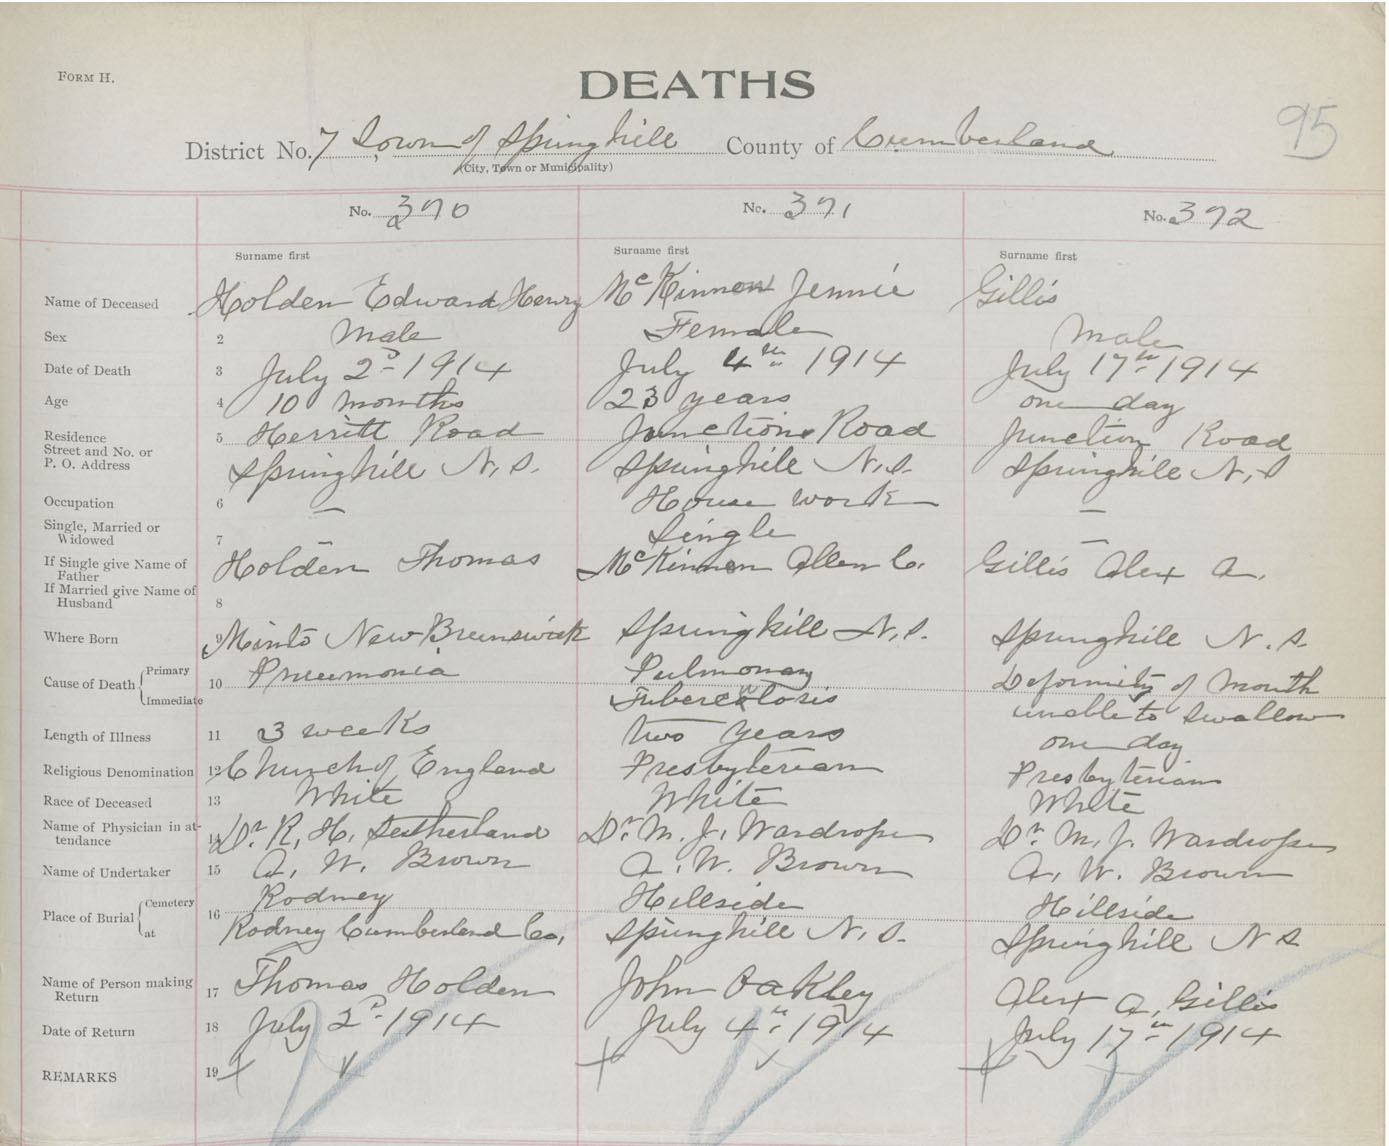 FORM H.
DEATHS
95
District No. 7 Town of Springhill County of Cumberland
(City, Town or Municipality)
No. 370 No. 371 No. 372
Surname first Surname first Surname first
Name of Deceased Holden Edward Henry McKinnon Jennie Gillis
Sex 2 Male Female Male
Date of Death 3 July 2d 1914 July 4th 1914 July 17th 1914
Age 4 10 months 23 years one day
Residence 5 Herritt Road Junction Road Junction Road
Street and No. or
P. O. Address Springhill N.S. Springhill N.S. Springhill N.S
Occupation 6 — House work —
Single, Married or
Widowed 7 — Single —
If Single give Name of
Father Holden Thomas McKinnon Allen C. Gillis Alex A.
If Married give Name of
Husband 8
Where Born 9 Minto New Brunswick Springhill N.S. Springhill N.S.
Cause of Death { Primary 10 Pneumonia Pulmonary Deformity of Mouth
Immediate Tuberculosis unable to swallow
Length of Illness 11 3 weeks two years one day
Religious Denomination 12 Church of England Presbyterian Presbyterian
Race of Deceased 13 White White White
Name of Physician in at-
tendance 14 Dr. R. H. Sutherland Dr. M. J. Wardrope Dr. M. J. Wardrope
Name of Undertaker 15 A. W. Brown A. W. Brown A. W. Brown
Place of Burial { Cemetery 16 Rodney Hillside Hillside
at Rodney Cumberland Co. Springhill N.S. Springhill N S
Name of Person making
Return 17 Thomas Holden John Oakley Alex A. Gillis
Date of Return 18 July 2d 1914 July 4th 1914 July 17th 1914
REMARKS 19